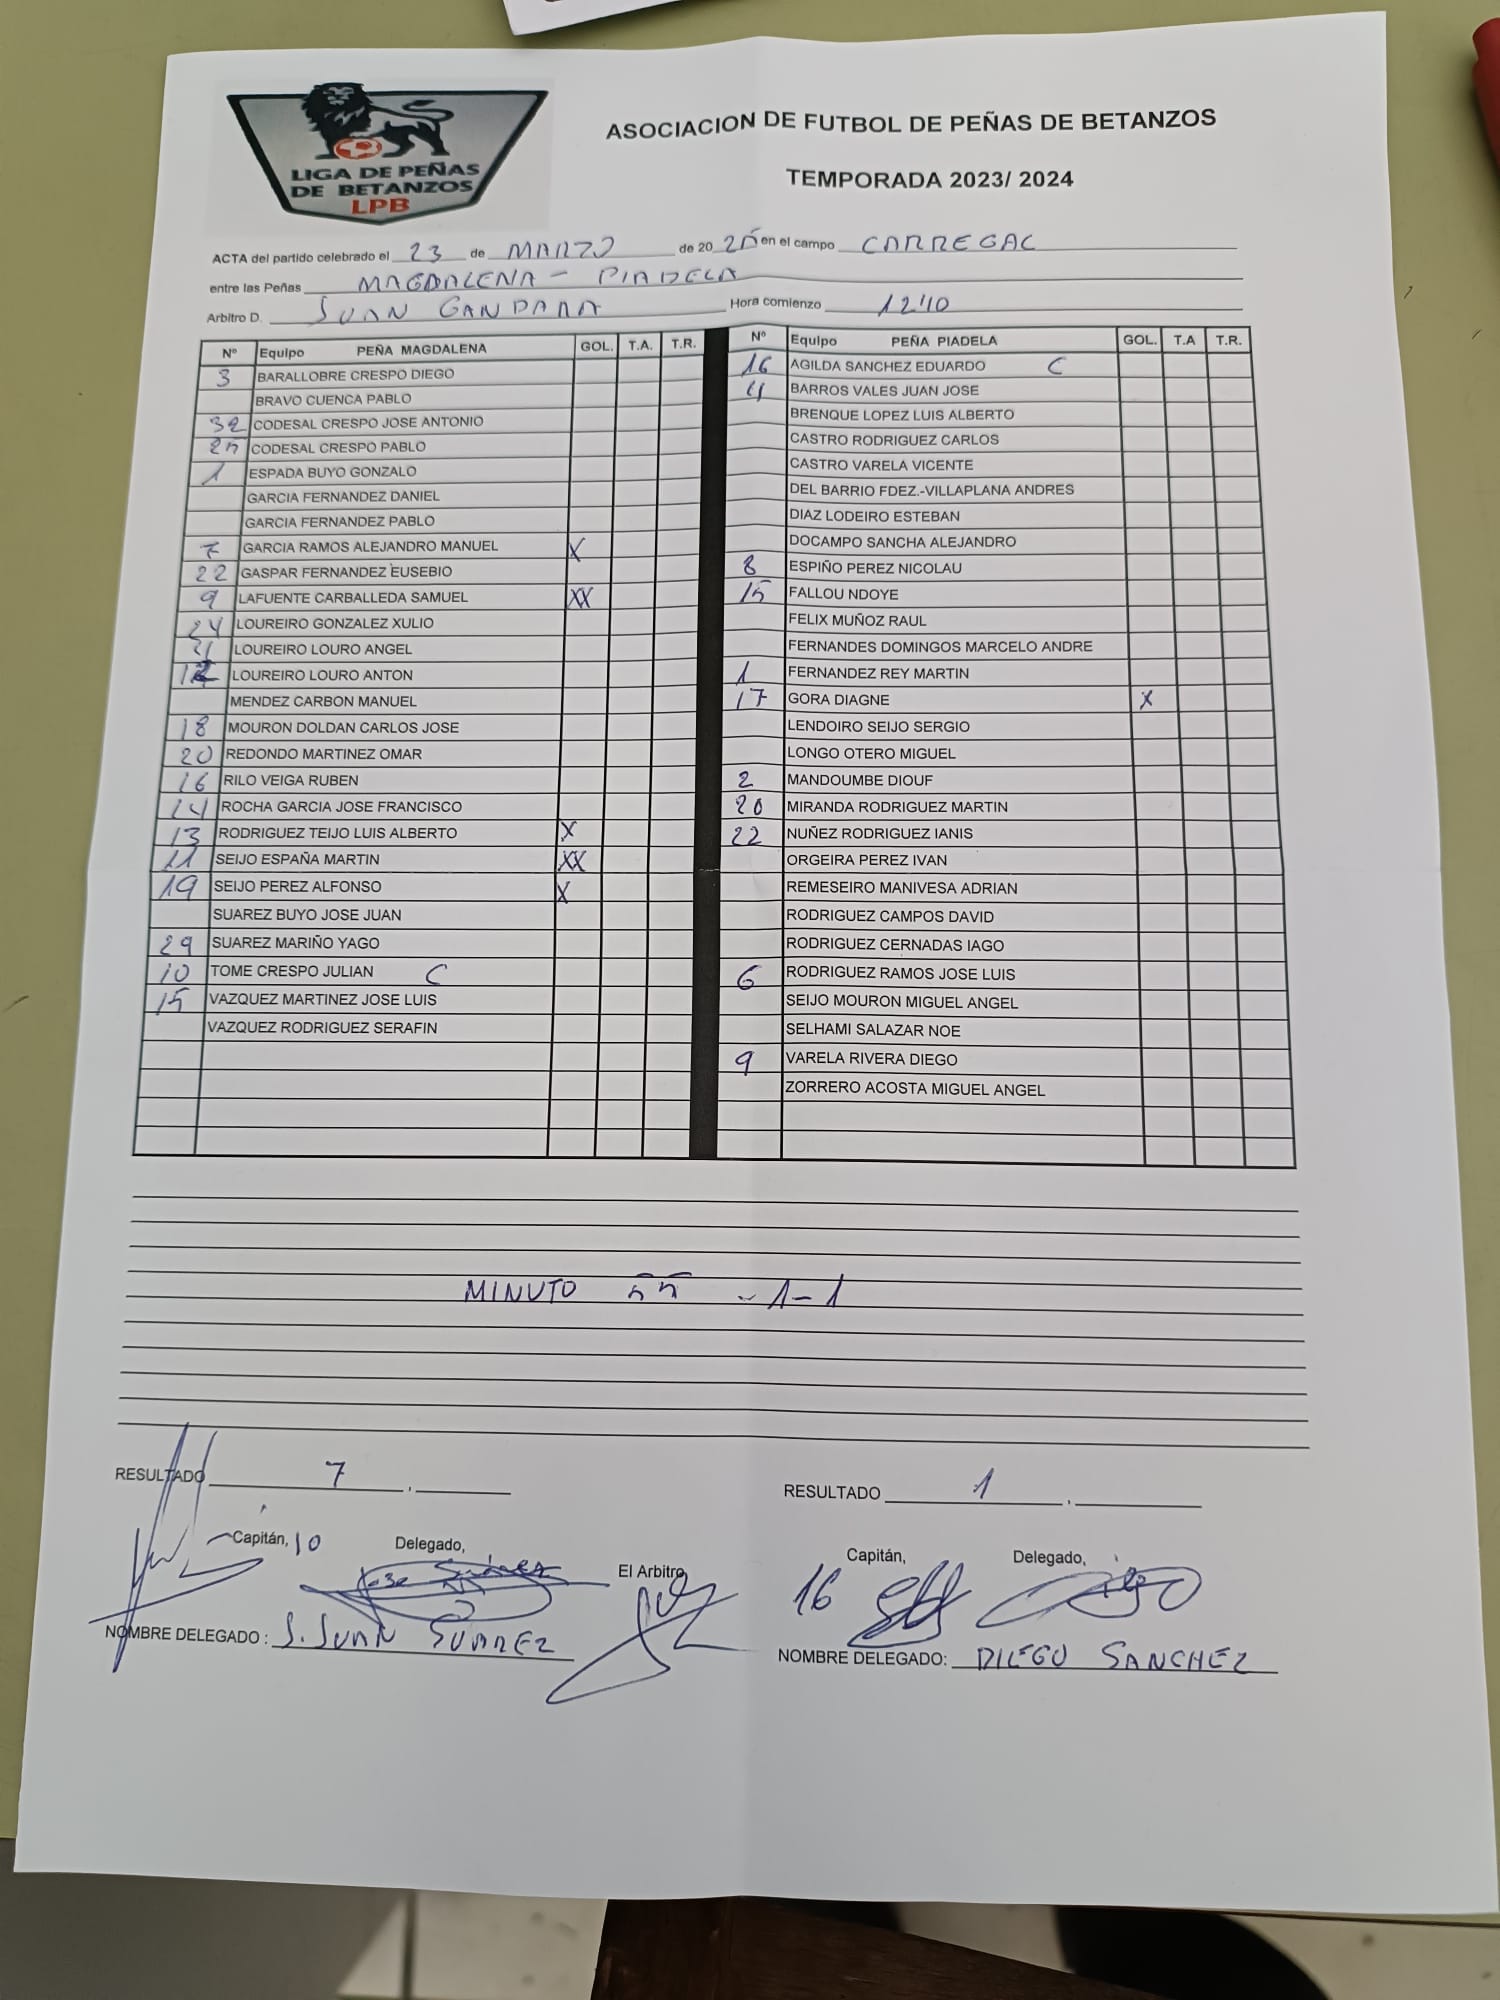 ASOCIACION DE FUTBOL DE PEÑAS DE BETANZOS
LIGA DE PEÑAS
DE BETANZOS
LPB
TEMPORADA 2023/ 2024
ACTA del partido celebrado el 23 de MARZO de 20 25 en el campo CARREGAL
entre las Peñas MAGDALENA - PIADELA
Arbitro D. JUAN GANDARA Hora comienzo 12'10
Nº Equipo PEÑA MAGDALENA GOL. T.A. T.R.
3 BARALLOBRE CRESPO DIEGO
BRAVO CUENCA PABLO
32 CODESAL CRESPO JOSE ANTONIO
25 CODESAL CRESPO PABLO
1 ESPADA BUYO GONZALO
GARCIA FERNANDEZ DANIEL
GARCIA FERNANDEZ PABLO
7 GARCIA RAMOS ALEJANDRO MANUEL X
22 GASPAR FERNANDEZ EUSEBIO
9 LAFUENTE CARBALLEDA SAMUEL XX
24 LOUREIRO GONZALEZ XULIO
LOUREIRO LOURO ANGEL
12 LOUREIRO LOURO ANTON
MENDEZ CARBON MANUEL
18 MOURON DOLDAN CARLOS JOSE
20 REDONDO MARTINEZ OMAR
16 RILO VEIGA RUBEN
14 ROCHA GARCIA JOSE FRANCISCO
13 RODRIGUEZ TEIJO LUIS ALBERTO X
11 SEIJO ESPAÑA MARTIN XX
19 SEIJO PEREZ ALFONSO X
SUAREZ BUYO JOSE JUAN
29 SUAREZ MARIÑO YAGO
10 TOME CRESPO JULIAN C
15 VAZQUEZ MARTINEZ JOSE LUIS
VAZQUEZ RODRIGUEZ SERAFIN
Nº Equipo PEÑA PIADELA GOL. T.A T.R.
16 AGILDA SANCHEZ EDUARDO C
4 BARROS VALES JUAN JOSE
BRENQUE LOPEZ LUIS ALBERTO
CASTRO RODRIGUEZ CARLOS
CASTRO VARELA VICENTE
DEL BARRIO FDEZ.-VILLAPLANA ANDRES
DIAZ LODEIRO ESTEBAN
DOCAMPO SANCHA ALEJANDRO
8 ESPIÑO PEREZ NICOLAU
15 FALLOU NDOYE
FELIX MUÑOZ RAUL
FERNANDES DOMINGOS MARCELO ANDRE
1 FERNANDEZ REY MARTIN
17 GORA DIAGNE X
LENDOIRO SEIJO SERGIO
LONGO OTERO MIGUEL
2 MANDOUMBE DIOUF
20 MIRANDA RODRIGUEZ MARTIN
22 NUÑEZ RODRIGUEZ IANIS
ORGEIRA PEREZ IVAN
REMESEIRO MANIVESA ADRIAN
RODRIGUEZ CAMPOS DAVID
RODRIGUEZ CERNADAS IAGO
6 RODRIGUEZ RAMOS JOSE LUIS
SEIJO MOURON MIGUEL ANGEL
SELHAMI SALAZAR NOE
9 VARELA RIVERA DIEGO
ZORRERO ACOSTA MIGUEL ANGEL
MINUTO 55 - 1-1
RESULTADO 7 ,
RESULTADO 1 ,
Capitán, 10 Delegado, El Arbitro
Capitán, Delegado,
16
NOMBRE DELEGADO : J. JUAN SUAREZ
NOMBRE DELEGADO: DIEGO SANCHEZ